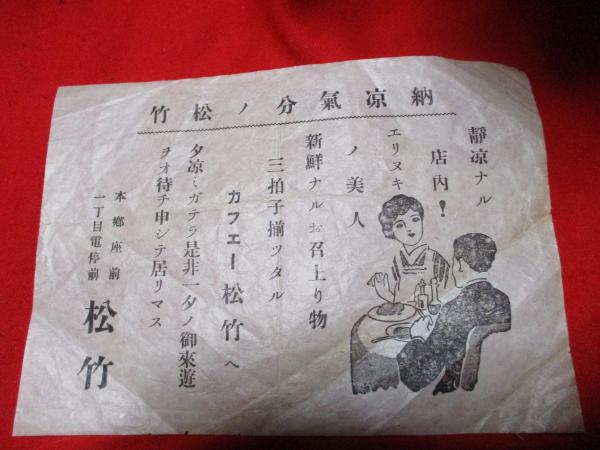 納凉氣分ノ松竹
靜凉ナル
店內!
エリヌキ
ノ美人
新鮮ナルお召上り物
三拍子揃ッタル
カフエー松竹へ
夕凉ミガテラ是非一夕ノ御來遊
ヲオ待チ申シテ居リマス
本鄕座前
一丁目電停前
松竹